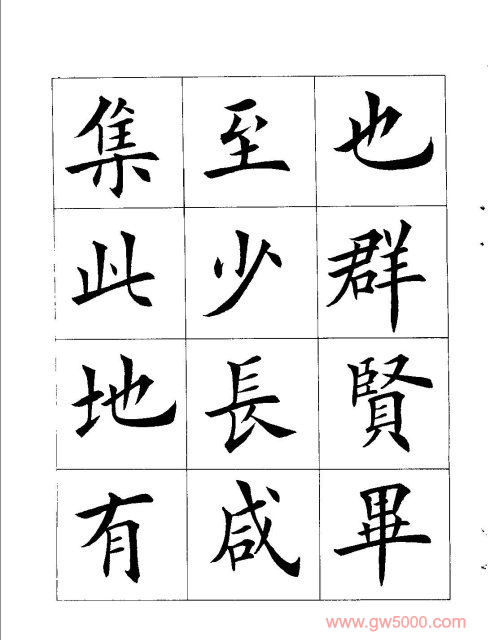 也群賢畢
至少長咸
集此地有
www.gw5000.com